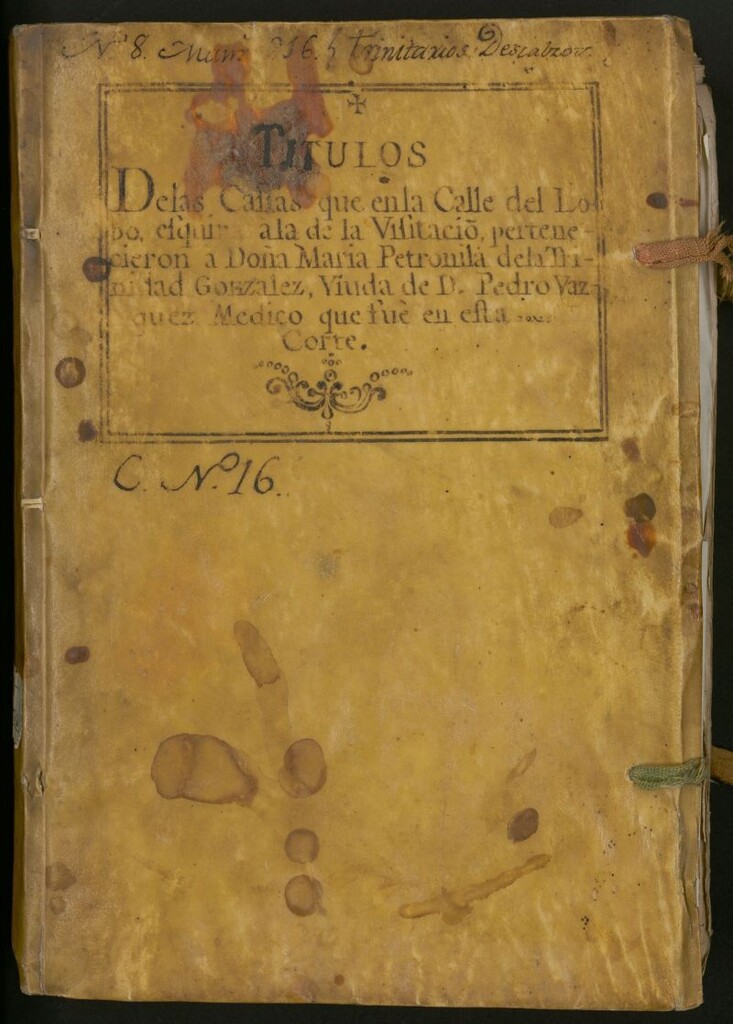 Nº 8. Trinitarios Descalzos
TITULOS
Delas Caſſas que enla Calle del Lo-
bo, eſquina ala de la Viſitaciõ, pertene-
cieron a Doña Maria Petronila dela Tri-
nidad Gonzalez, Viuda de D. Pedro Vaz-
quez Medico que fuè en eſta
Corte.
C. Nº 16.